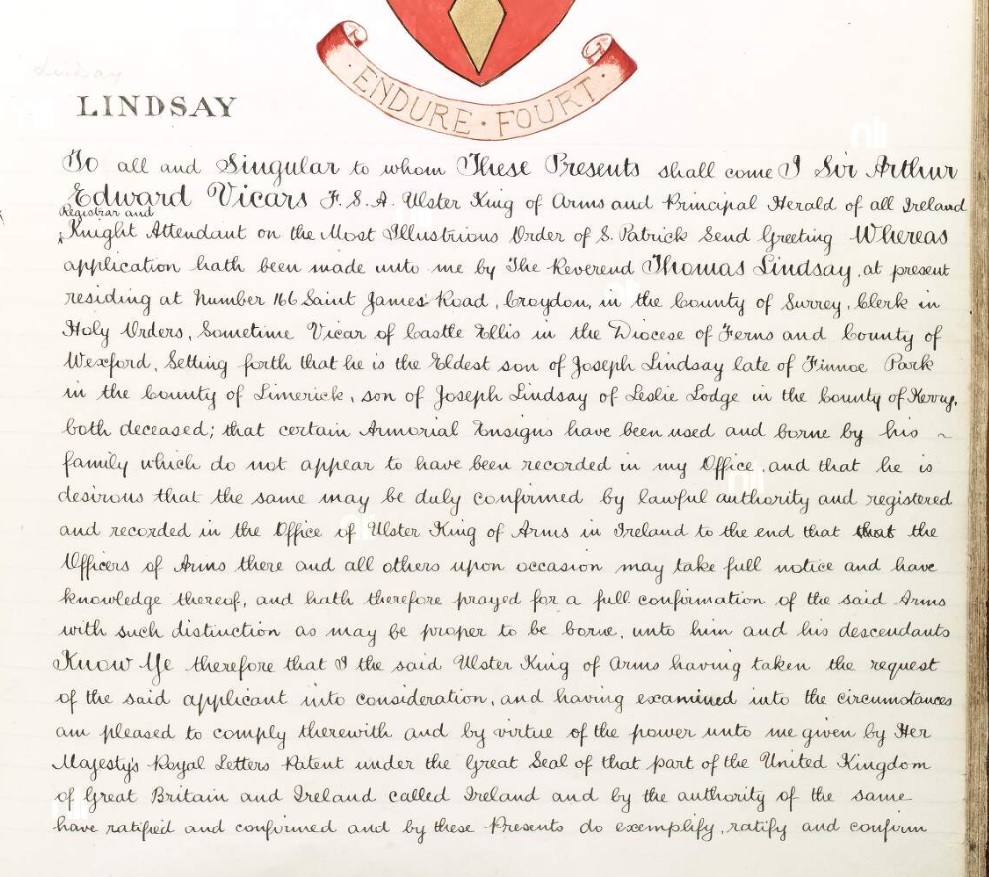 ENDURE · FOURT ·
Lindsay
LINDSAY
To all and Singular to whom These Presents shall come I Sir Arthur
Edward Vicars F. S. A. Ulster King of Arms and Principal Herald of all Ireland
Registrar and
Knight Attendant on the Most Illustrious Order of S. Patrick Send Greeting Whereas
application hath been made unto me by The Reverend Thomas Lindsay, at present
residing at Number 166 Saint James' Road, Croydon, in the County of Surrey, Clerk in
Holy Orders, Sometime Vicar of Castle Ellis in the Diocese of Ferns and County of
Wexford, Setting forth that he is the Eldest son of Joseph Lindsay late of Finnoe Park
in the County of Limerick, son of Joseph Lindsay of Leslie Lodge in the County of Kerry,
both deceased; that certain Armorial Ensigns have been used and borne by his ~
family which do not appear to have been recorded in my Office, and that he is
desirous that the same may be duly confirmed by lawful authority and registered
and recorded in the Office of Ulster King of Arms in Ireland to the end that that the
Officers of Arms there and all others upon occasion may take full notice and have
knowledge thereof, and hath therefore prayed for a full confirmation of the said Arms
with such distinction as may be proper to be borne, unto him and his descendants
Know Ye therefore that I the said Ulster King of Arms having taken the request
of the said applicant into consideration, and having examined into the circumstances
am pleased to comply therewith and by virtue of the power unto me given by Her
Majesty's Royal Letters Patent under the Great Seal of that part of the United Kingdom
of Great Britain and Ireland called Ireland and by the authority of the same
have ratified and confirmed and by these Presents do exemplify, ratify and confirm